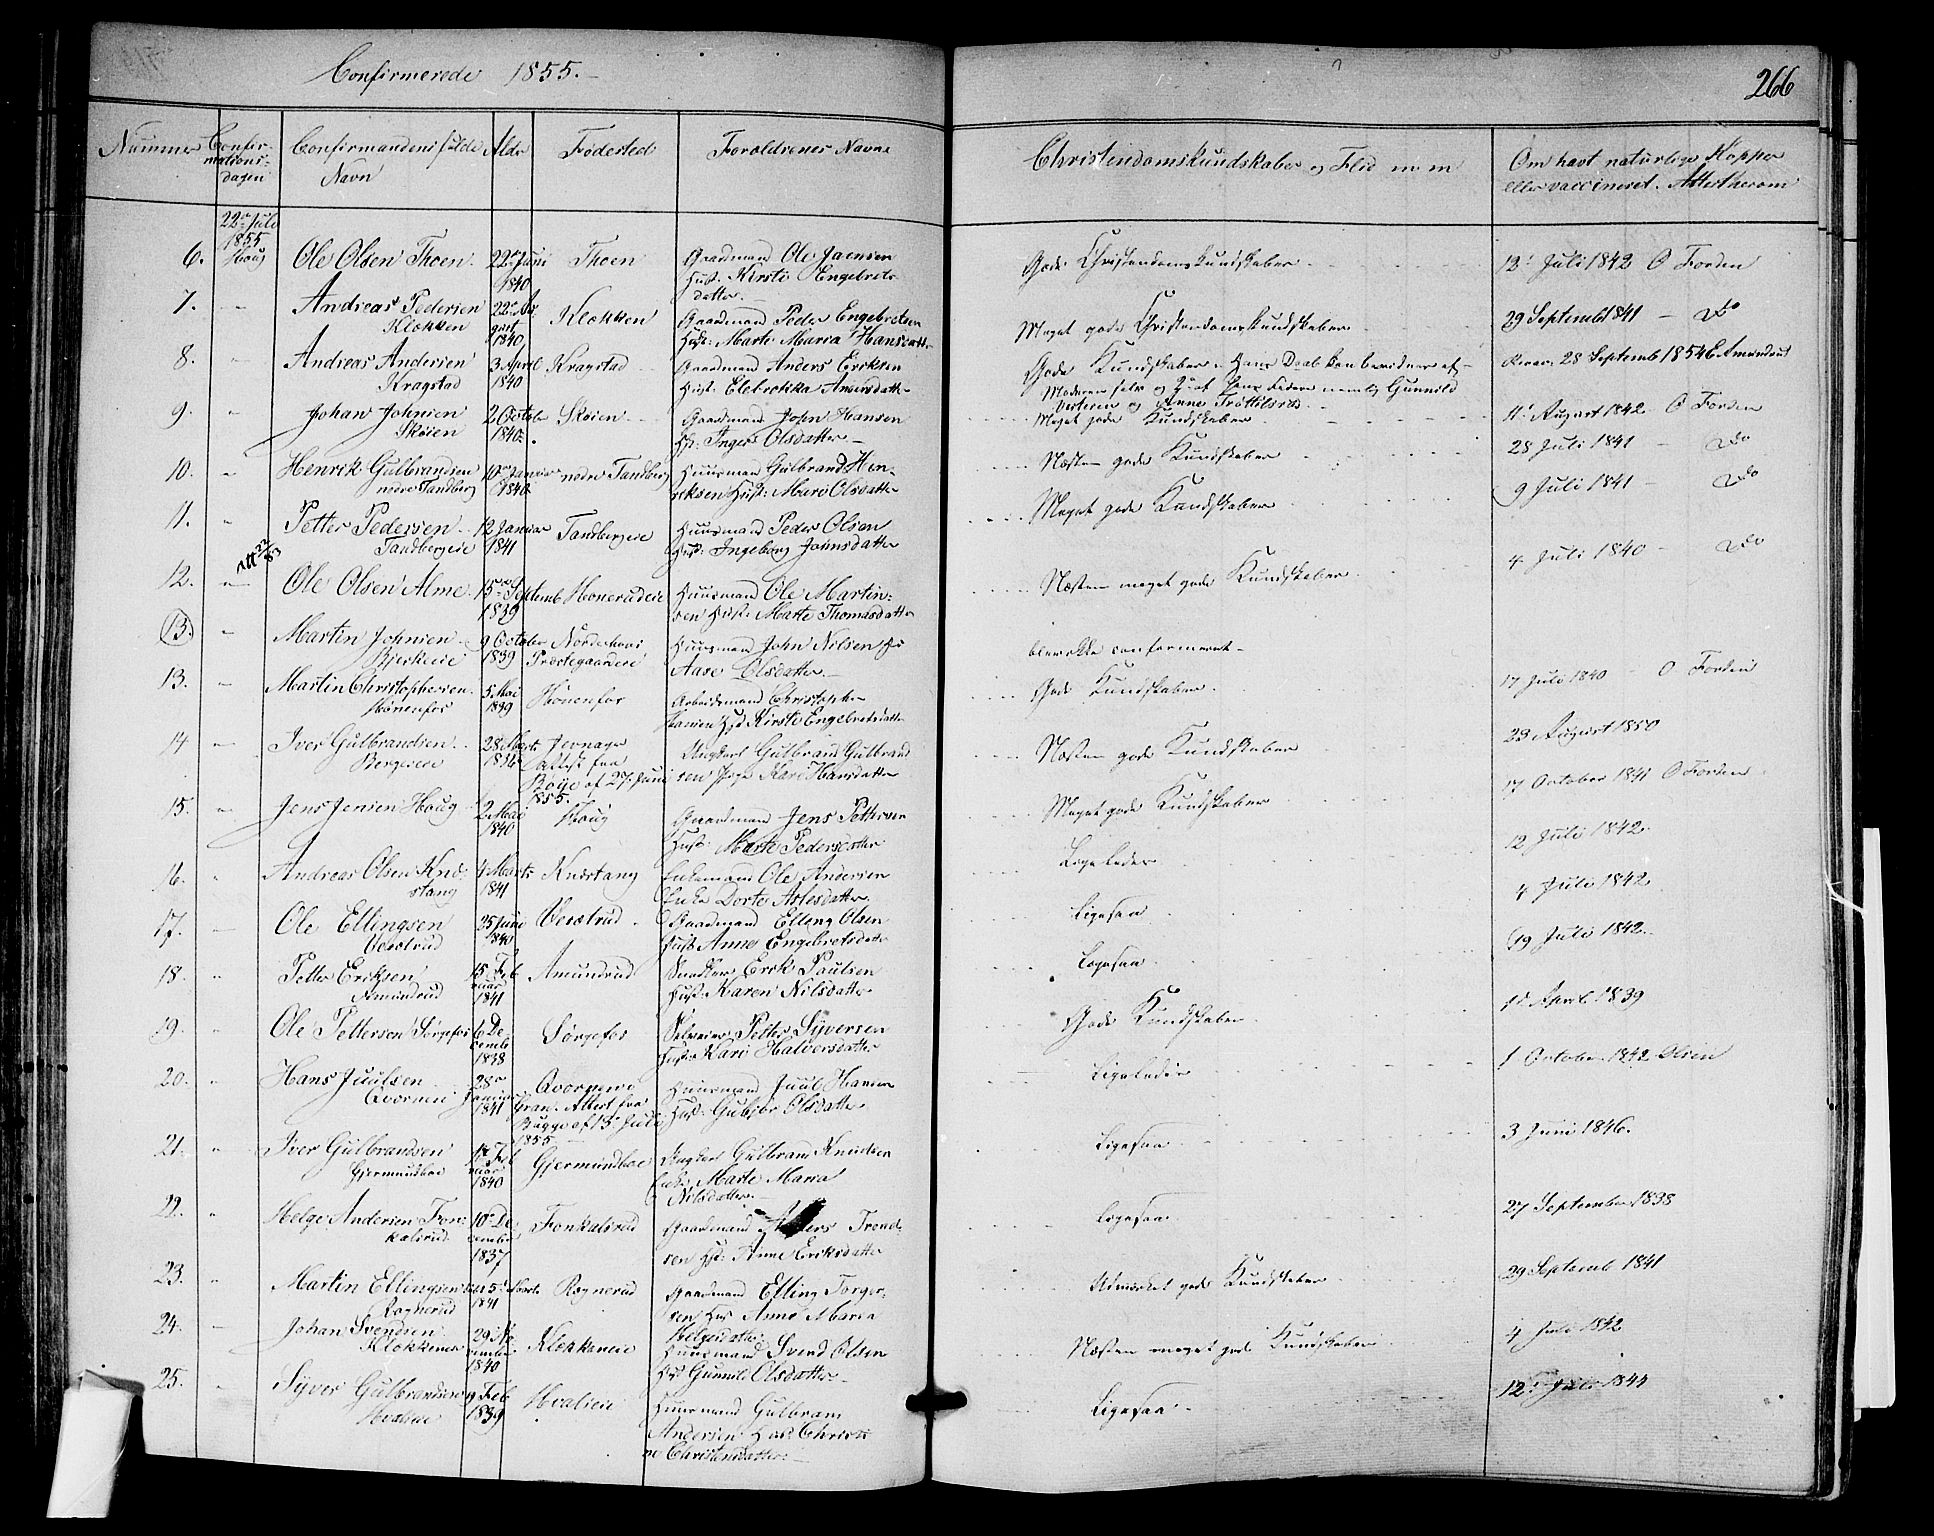 Confirmerede 1855.
266
Nummer
Confir-
mations-
dagen
Confirmandens fulde
Navn
Alder
Fødested
Forældrenes Navne
Christendomskundskaber og Flid m m
Om havt naturlige Kopper
eller vaccineret. Attest herom
22de Juli
1855
Houg
6. Ole Olsen Thoen. 22de Juni 1840 Thoen Gaardmand Ole Jaensen
Hust: Kirsti Engebrets-
datter.
Gode Christendomskundskaber 12t Juli 1842 O Forden
7. Andreas Pedersen
Klokken 22de Au-
gust
1840 Klokken Gaardmand Peder Engebretsen
Hust: Marte Maria Hansdatter
Meget gode Christendomskundskaber 29 Septemb 1841 - Do
8. Andreas Andersen
Kragstad 3 April
1840 Kragstad Gaardmand Anders Eriksen
Hust: Elebrokka Amundsdatter
Gode Kundskaber. Hans Daab bevidnes af
Moderen selv og Gunnild
og Anne
28 Septemb 1854
9. Johan Johnsen
Skøien 2 October
1840. Skøien Gaardmand John Hansen
Hst: Inger Olsdatter
Meget gode Kundskaber 11t August 1842 O Forden
10. Henrik Gulbrandsen
nedre Tandberg 10de Januar
1840. nedre Tandberg Huusmand Gulbrand Hen-
riksen Hust: Mari Olsdatter
Næsten gode Kundskaber 28 Juli 1841 - Do
11. Petter Pedersen
Tandbergeie 12 Januar
1841 Tandbergeie Huusmand Peder Olsen
Hust: Ingeborg Johnsdatter
Meget gode Kundskaber 9 Juli 1841 - Do
Att 22/83
12. Ole Olsen Alme 15de Septemb
1839 Honerudeie Huusmand Ole Martin-
sen Hust: Marte Thomasdatter
Næsten meget gode Kundskaber 4 Juli 1840 - Do
13. Martin Johnsen
Bjerkeeie 9 October
1839 Norderhovs
Præstegaardeie Huusmand John Nilsen Hu
Aase Olsdatter.
blev ikke confirmeret
13. Martin Christophersen
Hønenfos 5 Mai
1839 Hønenfos Arbeidsmand Christopher
Hansen Hst Kirsti Engebretsdatter
Gode Kundskaber. 17 Juli 1840 - O Forden
14 Iver Gulbrandsen
Bergeeie 28 Marts
1836 Jevnager
attest fra
Bøije af 27. Juni
1855. Ungkarl Gulbrand Gulbrand
sen Pige Kari Hansdatter
Næsten gode Kundskaber 23 August 1850
15. Jens Jensen Houg 2 Mai
1840 Houg Gaardmand Jens Pettersen
Hust: Marte Pedersdatter
Meget gode Kundskaber 17 October 1841 O Forden
16. Andreas Olsen Knæ-
stang 4 Marts
1841 Knæstang Enkemand Ole Andersen
Enke Dorte Atlesdatter
Ligeledes 12 Juli 1842
17. Ole Ellingsen
Veesetrud 25 Juni
1840 Veesetrud Gaardmand Elling Olsen
Hust Anne Engebretsdatter
Ligesaa 4 Juli 1842
18. Petter Eriksen
Amundrud 15 Feb
ruar
1841 Amundrud Snedker Erik Paulsen
Hust: Karen Nilsdatter
Ligesaa 19 Juli 1842
19. Ole Pettersen Sørgefos 6 De-
cemb
1838 Sørgefos Selveier Petter Syversen
Hust: Kari Halversdatter
Gode Kundskaber 11 April 1839
20. Hans Juulsen
Qvernen 28de
Januar
1841 Qvernene
Gran. Attest fra
Bugge af 15. Juli
1855 Huusmand Juul Hansen
Hust: Gubjør Olsdatter
Ligeledes 1 October 1842 Olsen
21. Iver Gulbrandsen
Gjermundboe 14 Feb
ruar
1840 Gjermundboe Ungkarl Gulbrand Knudsen
Enke: Marte Maria
Nilsdatter
Ligesaa 3 Juni 1846.
22. Helge Andersen Fon-
kalsrud 10de De-
cember
1837 Fonkalsrud Gaardmand Anders Trond-
sen Hst: Anne Eriksdatter
Ligesaa 27 September 1838
23. Martin Ellingsen
Rognerud 5 Marts
1841 Rognerud Gaardmand Elling Torger-
sen Hus Anne Maria
Helgesdatter
Udmærket gode Kundskaber 29 Septemb 1841
24. Johan Svendsen
Klokkeneie 29 No
vember
1840 Klokkeneie Huusmand Svend Olsen
Hst Gunnild Olsdatter
Næsten meget gode Kundskaber 4 Juli 1842
25. Syver Gulbrandsen
Hvaleeie 9 Feb
1839 Hvaleeie Huusmand Gulbran
Andersen Hus: Christi
ne Christensdatter
Ligesaa 12t Juli 1844